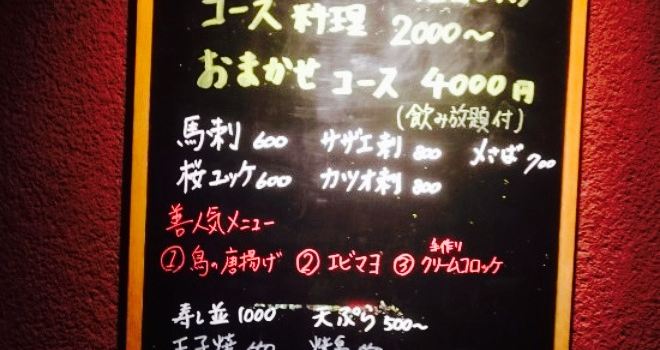 コース料理 2000〜
おまかせコース 4000円
(飲み放題付)
馬刺 600 サザエ刺 800 〆さば 700
桜ユッケ 600 カツオ刺 800
善人気メニュー
①鳥の唐揚げ ②エビマヨ ③手作りクリームコロッケ
寿し並 1000 天ぷら 500〜
玉子焼